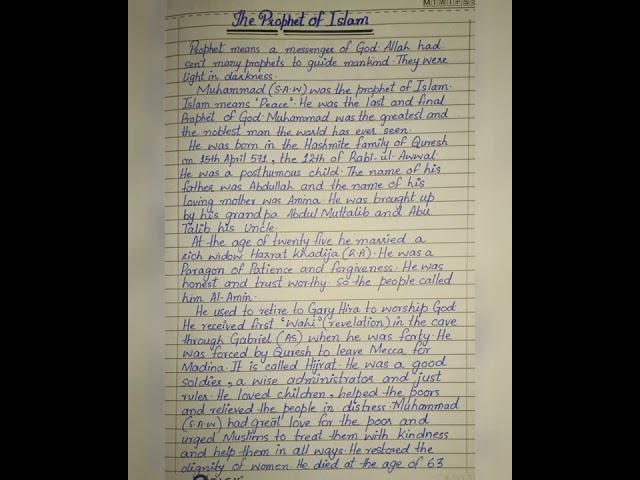 M T W T F S S
The Prophet of Islam
Prophet means a messenger of God. Allah had
sent many prophets to guide mankind. They were
light in darkness.
Muhammad (S.A.W) was the prophet of Islam.
Islam means "Peace". He was the last and final
Prophet of God. Muhammad was the greatest and
the noblest man the world has ever seen.
He was born in the Hashmite family of Quresh
on 15th April 571, the 12th of Rabi-ul-Awwal.
He was a posthumous child. The name of his
father was Abdullah and the name of his
loving mother was Amina. He was brought up
by his grandpa Abdul Muttalib and Abu
Talib his Uncle.
At the age of twenty five he married a
rich widow Hazrat Khadija (R.A). He was a
Paragon of Patience and forgiveness. He was
honest and trust worthy. So the people called
him Al-Amin.
He used to retire to Gary Hira to worship God.
He received first "Wahi" (revelation) in the cave
through Gabriel (AS) when he was forty. He
was forced by Quresh to leave Mecca for
Madina. It is called Hijrat. He was a good
soldier, a wise administrator and just
ruler. He loved children, helped the poors
and relieved the people in distress. Muhammad
(S.A.W) had great love for the poor and
urged Muslims to treat them with kindness
and help them in all ways. He restored the
dignity of women. He died at the age of 63